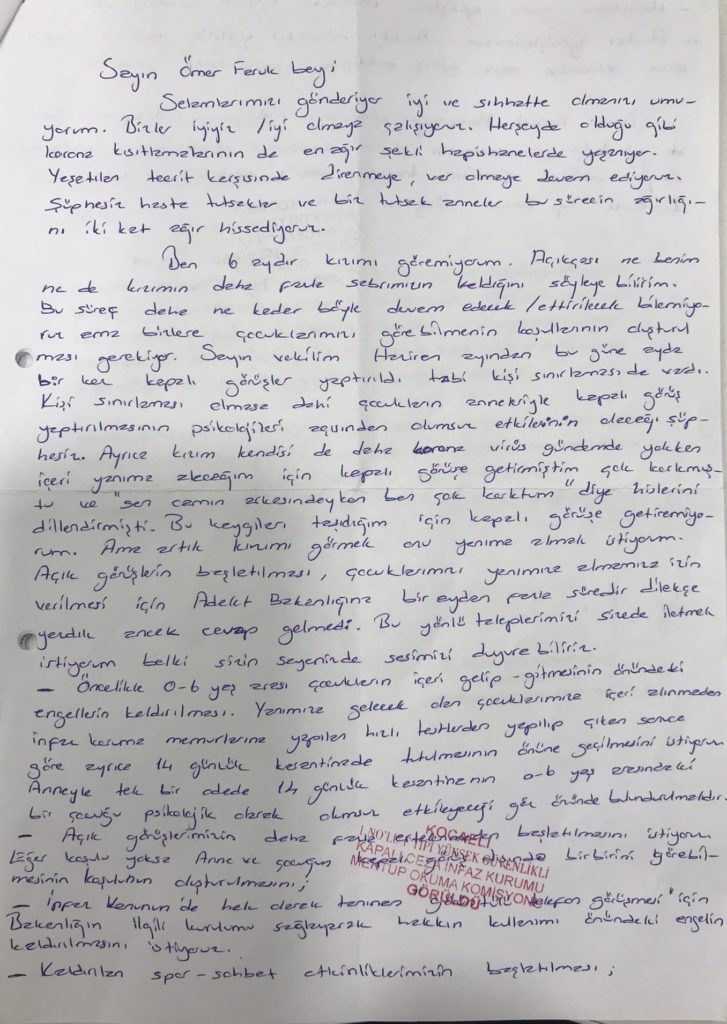 Sayın Ömer Faruk bey;
Selamlarımızı gönderiyor iyi ve sıhhatte olmanızı umu-
yorum. Bizler iyiyiz / iyi olmaya çalışıyoruz. Herşeyde olduğu gibi
korona kısıtlamalarının da en ağır şekli hapishanelerde yaşanıyor.
Yaşatılan tecrit karşısında direnmeye, var olmaya devam ediyoruz.
Şüphesiz hasta tutsaklar ve biz tutsak anneler bu sürecin ağırlığı-
nı iki kat ağır hissediyoruz.
Ben 6 aydır kızımı göremiyorum. Açıkçası ne benim
ne de kızımın daha fazla sabrımızın kaldığını söyleye bilirim.
Bu süreç daha ne kadar böyle devam edecek / ettirilecek bilemiyo-
ruz ama bizlere çocuklarımızı göre bilmenin koşullarının oluşturul
ması gerekiyor. Sayın vekilim Haziran ayından bu güne ayda
bir kez kapalı görüşler yaptırıldı tabi kişi sınırlaması da vardı.
Kişi sınırlaması olmasa dahi çocukların anneleriyle kapalı görüş
yaptırılmasının psikolojileri açısından olumsuz etkilerinin olacağı şüp-
hesiz. Ayrıca kızım kendisi de daha korona virüs gündemde yokken
içeri yanıma alacağım için kapalı görüşe getirmiştim çok korkmuş-
tu ve "sen camın arkasındayken ben çok korktum" diye hislerini
dillendirmişti. Bu kaygıları taşıdığım için kapalı görüşe getiremiyo-
rum. Ama artık kızımı görmek onu yanıma almak istiyorum.
Açık görüşlerin başlatılması, çocuklarımızı yanımıza almamıza izin
verilmesi için Adalet Bakanlığına bir aydan fazla süredir dilekçe
yazdık ancak cevap gelmedi. Bu yönlü taleplerimizi sizede iletmek
istiyorum belki sizin sayenizde sesimizi duyura biliriz.
— Öncelikle 0-6 yaş arası çocukların içeri gelip-gitmesinin önündeki
engellerin kaldırılması. Yanımıza gelecek olan çocuklarımıza içeri alınmadan
infaz koruma memurlarına yapılan hızlı testlerden yapılıp çıkan sonca
göre ayrıca 14 günlük karantinada tutulmasının önüne geçilmesini istiyoruz
Anneyle tek bir odada 14 günlük karantinanın 0-6 yaş arasındaki
bir çocuğu psikolojik olarak olumsuz etkileyeceği göz önünde bulundurulmalıdır.
— Açık görüşlerimizin daha fazla ertelenmeden başlatılmasını istiyoruz.
Eğer koşulu yoksa Anne ve çocuğun kapalı görüş dışında birbirini görebil-
mesinin koşulunun oluşturulmasını;
— İnfaz Kanunun'da hak olarak tanınan "görüntülü telefon görüşmesi" için
Bakanlığın ilgili kurulumu sağlayarak hakkın kullanımı önündeki engelin
kaldırılmasını istiyoruz.
— Kaldırılan spor-sohbet etkinliklerimizin başlatılması;
KOCAELİ
1 NO'LU F TİPİ YÜKSEK GÜVENLİKLİ
KAPALI CEZA İNFAZ KURUMU
MEKTUP OKUMA KOMİSYONU
GÖRÜLDÜ